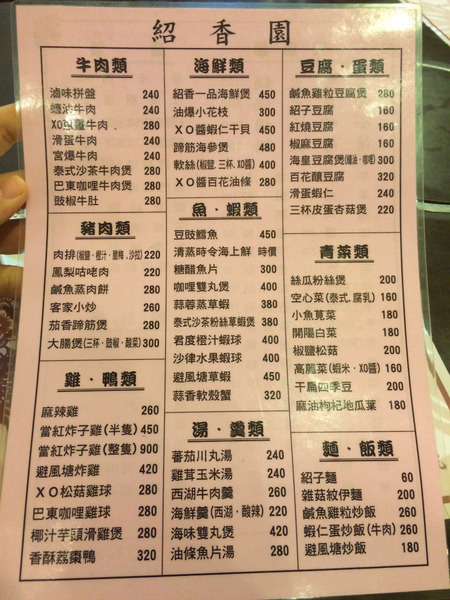 紹香園
牛肉類
滷味拼盤 240
蠔油牛肉 240
XO 牛肉 280
滑蛋牛肉 240
宮爆牛肉 240
泰式沙茶牛肉煲 280
巴東咖哩牛肉煲 280
豉椒牛肚 280
豬肉類
肉排(椒鹽、橙汁、梅、沙拉) 220
鳳梨咕咾肉 220
鹹魚蒸肉餅 280
客家小炒 260
茄香蹄筋煲 280
大腸煲(三杯、豉椒、酸菜) 300
雞、鴨類
麻辣雞 260
當紅炸子雞(半隻) 450
當紅炸子雞(整隻) 900
避風塘炸雞 420
XO松菇雞球 280
巴東咖哩雞球 280
椰汁芋頭滑雞煲 280
香酥荔棗鴨 320
海鮮類
紹香一品海鮮煲 450
油爆小花枝 300
XO醬蝦仁干貝 450
蹄筋海參煲 480
軟絲(椒鹽、三杯、XO醬) 400
XO醬百花油條 280
魚、蝦類
豆豉鱈魚 450
清蒸時令海上鮮 時價
糖醋魚片 300
咖哩雙丸煲 400
蒜蓉蒸草蝦 380
泰式沙茶粉絲草蝦煲 380
君度橙汁蝦球 400
沙律水果蝦球 400
避風塘草蝦 400
蒜香軟殼蟹 320
湯、羹類
蕃茄川丸湯 240
雞茸玉米湯 240
西湖牛肉羹 260
海鮮羹(西湖、酸辣) 220
海味雙丸煲 240
油條魚片湯 240
豆腐、蛋類
鹹魚雞粒豆腐煲 280
紹子豆腐 240
紅燒豆腐 240
椒麻豆腐 240
海皇豆腐煲(蠔油、咖哩) 300
百花釀豆腐 320
滑蛋蝦仁 240
三杯皮蛋杏菇煲 240
青菜類
絲瓜粉絲煲 200
空心菜(泰式、腐乳) 160
小魚莧菜 180
開陽白菜 180
椒鹽松菇 200
高麗菜(蝦米、XO醬) 160
干扁四季豆 200
麻油枸杞地瓜葉 180
麵、飯類
紹子麵 60
雜菇紋伊麵 200
鹹魚雞粒炒飯 160
蝦仁蛋炒飯(牛肉) 160
避風塘炒飯 180